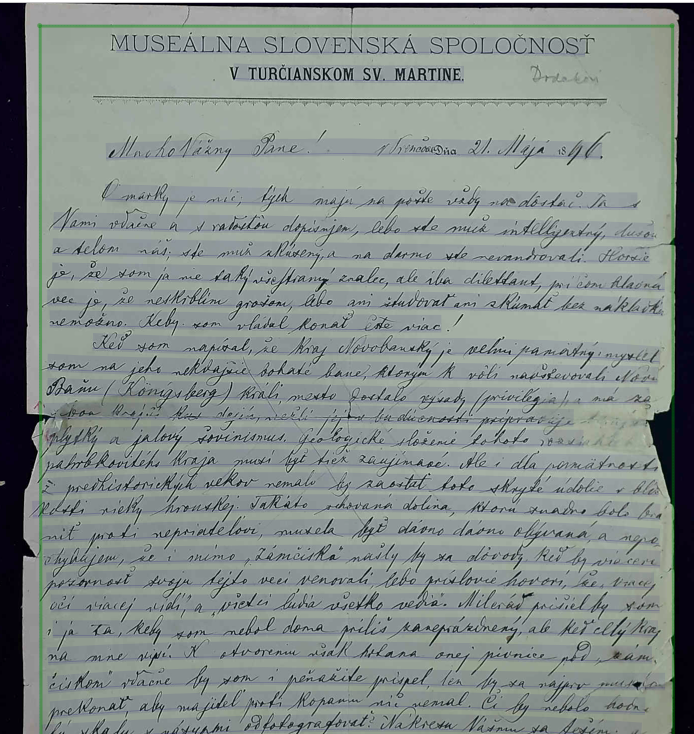 MUSEÁLNA SLOVENSKÁ SPOLOČNOSŤ
V TURČIANSKOM SV. MARTINE.
Mnoho Vážny Pane! Dňa 21. Mája 1896.
O márky je nič, tých majú na pošte vždy dostač. Ja s
Vami vďačne a s radosťou dopisujem, lebo ste muž intelligentný, dušou
a telom náš; ste muž skúsený, a na darmo ste nevandrovali. Horšie
je, že som ja nie taký všestranný znalec, ale iba dilettant, pričom hlavná
vec je, že neskrblím grošom, lebo ani študovať ani skúmať bez nákladku
nemožno. Keby som vládal konať ešte viac!
Keď som napísal, že kraj Novobanský je veľmi pamätný, myslel
som na jeho nekdajšie bohaté bane, ktorým k vôli navštevovali Novú
Baňu (Königsberg) králi, mesto dostalo výsady (privilegia) a na
plytký a jalový šovinismus. Geologické složenie tohoto
pahrbkovitého kraja musí byť tiež zaujímavé. Ale i dľa pamätností
z predhistorických vekov nemalo by zaostať toto skryté údolie v
rieky hronskej. Takáto schovaná dolina, ktorú snadno bolo brá
niť proti nepriateľovi, musela byť dávno dávno obývaná, a nepo-
chybujem, že i mimo „Zámčiská“ našly by sa dôvody, keď by viacerí
pozornosť svoju tejto veci venovali, lebo príslovie hovorí, že: viacej
očí viacej vidí, a všetci ľudia všetko vedia. Milerád prišiel by som
i ja ta, keby som nebol doma príliš zaneprázdnený, ale keď celý kraj
na mne visí. K otvoreniu však onej pivnice pod „Zám-
čiskom“ vďačne by som i peňažite prispel, len by sa najprv muselo
prekonať, aby majiteľ proti kopaniu nič nemal. Či by nebolo
odfotografovať? Nákresu Vášmu sa teším;